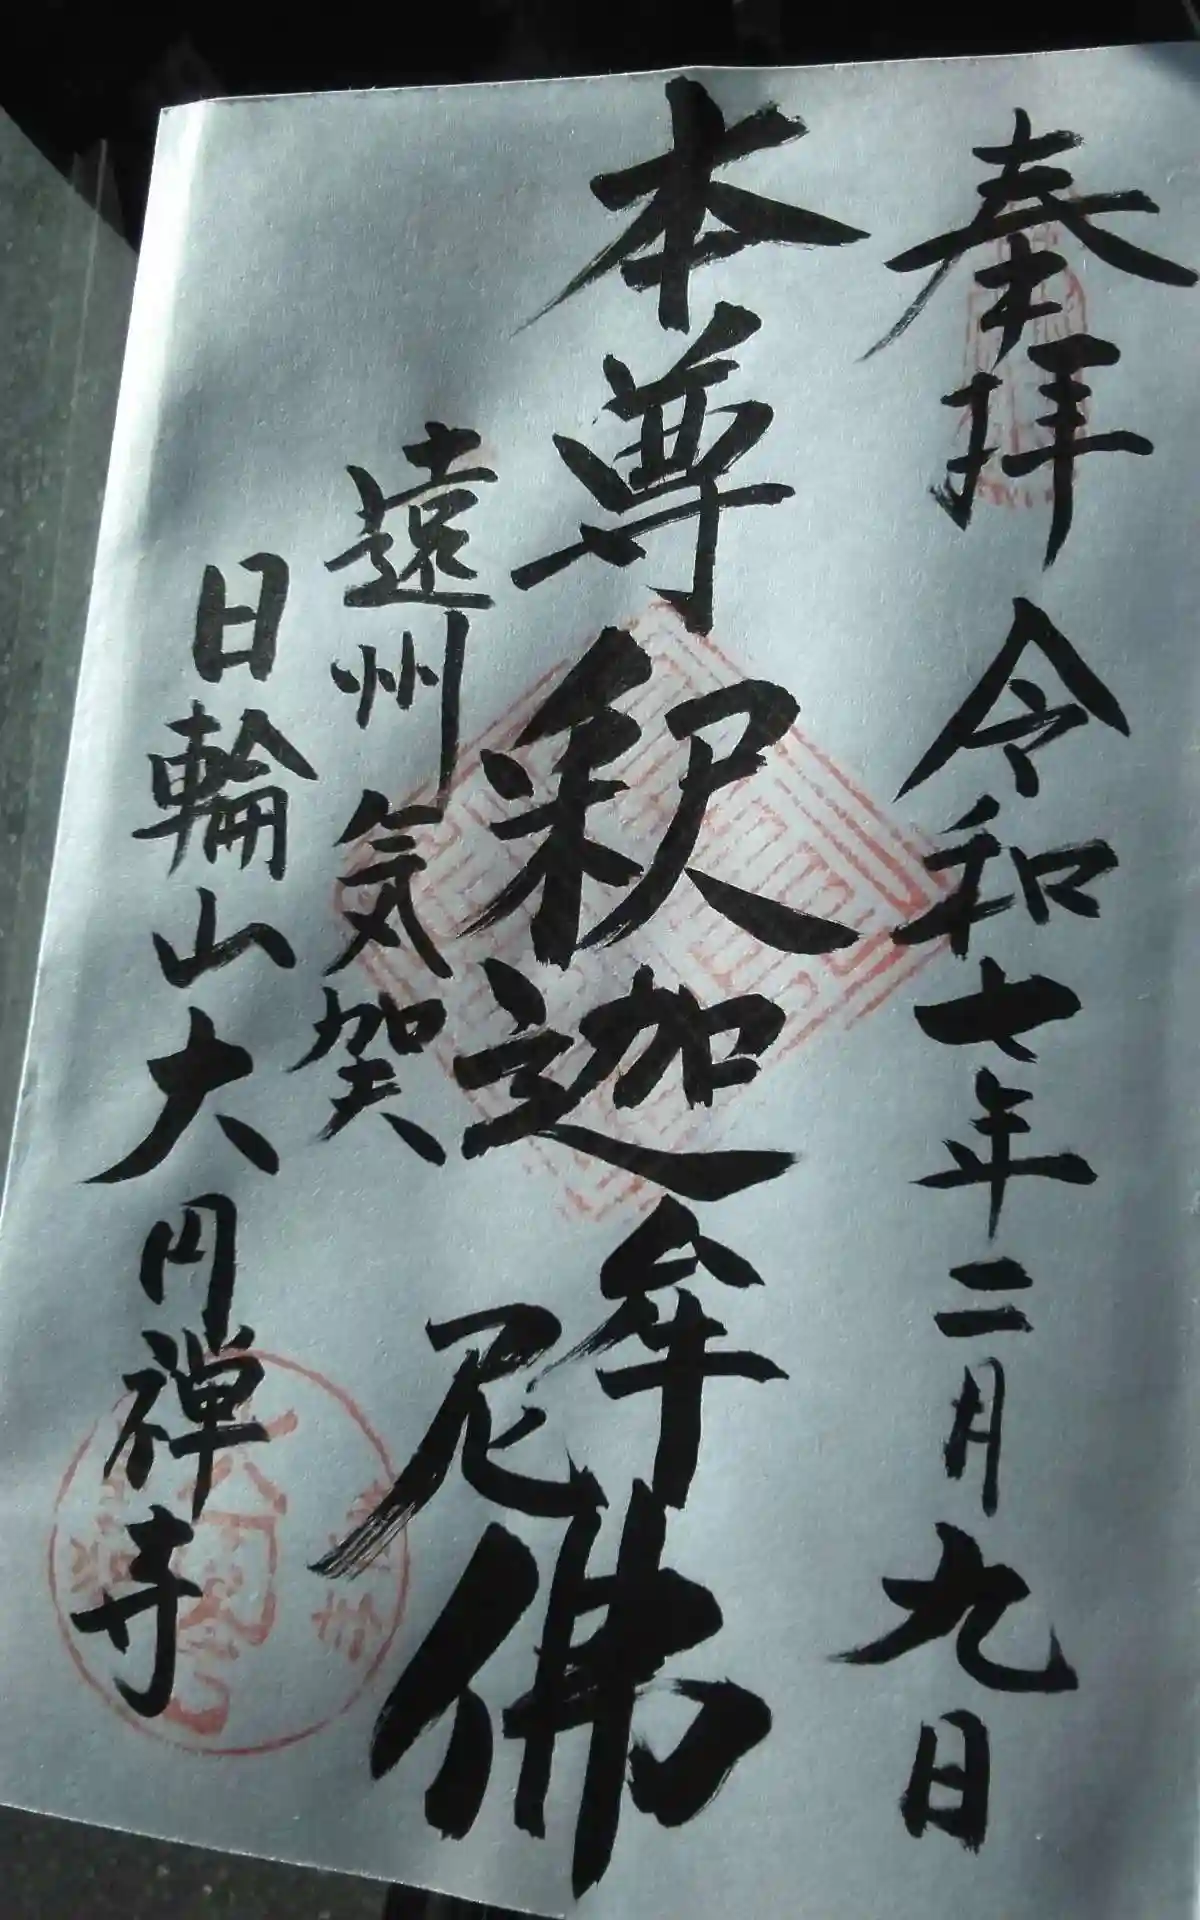 奉拝 令和七年二月九日
本尊釈迦牟尼佛
遠州気賀
日輪山大円禅寺